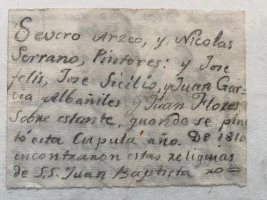 Severo Arzeo, y, Nicolas
Serrano, Pintores: y Jose
felis, Jose Sicilio, y Juan Gar-
cia Albañiles y Juan Flores
Sobre estante, quando se pin
tó esta Cupula año. De 1810
encontraron estas religuias
de S,S, Juan Baptista